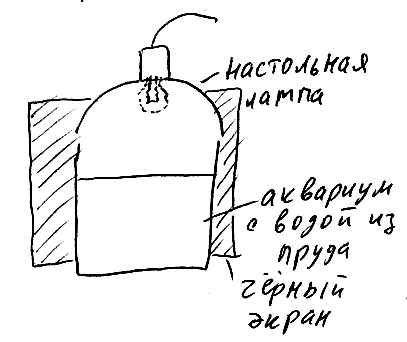 настольная
лампа
аквариум
с водой из
пруда
чёрный
экран